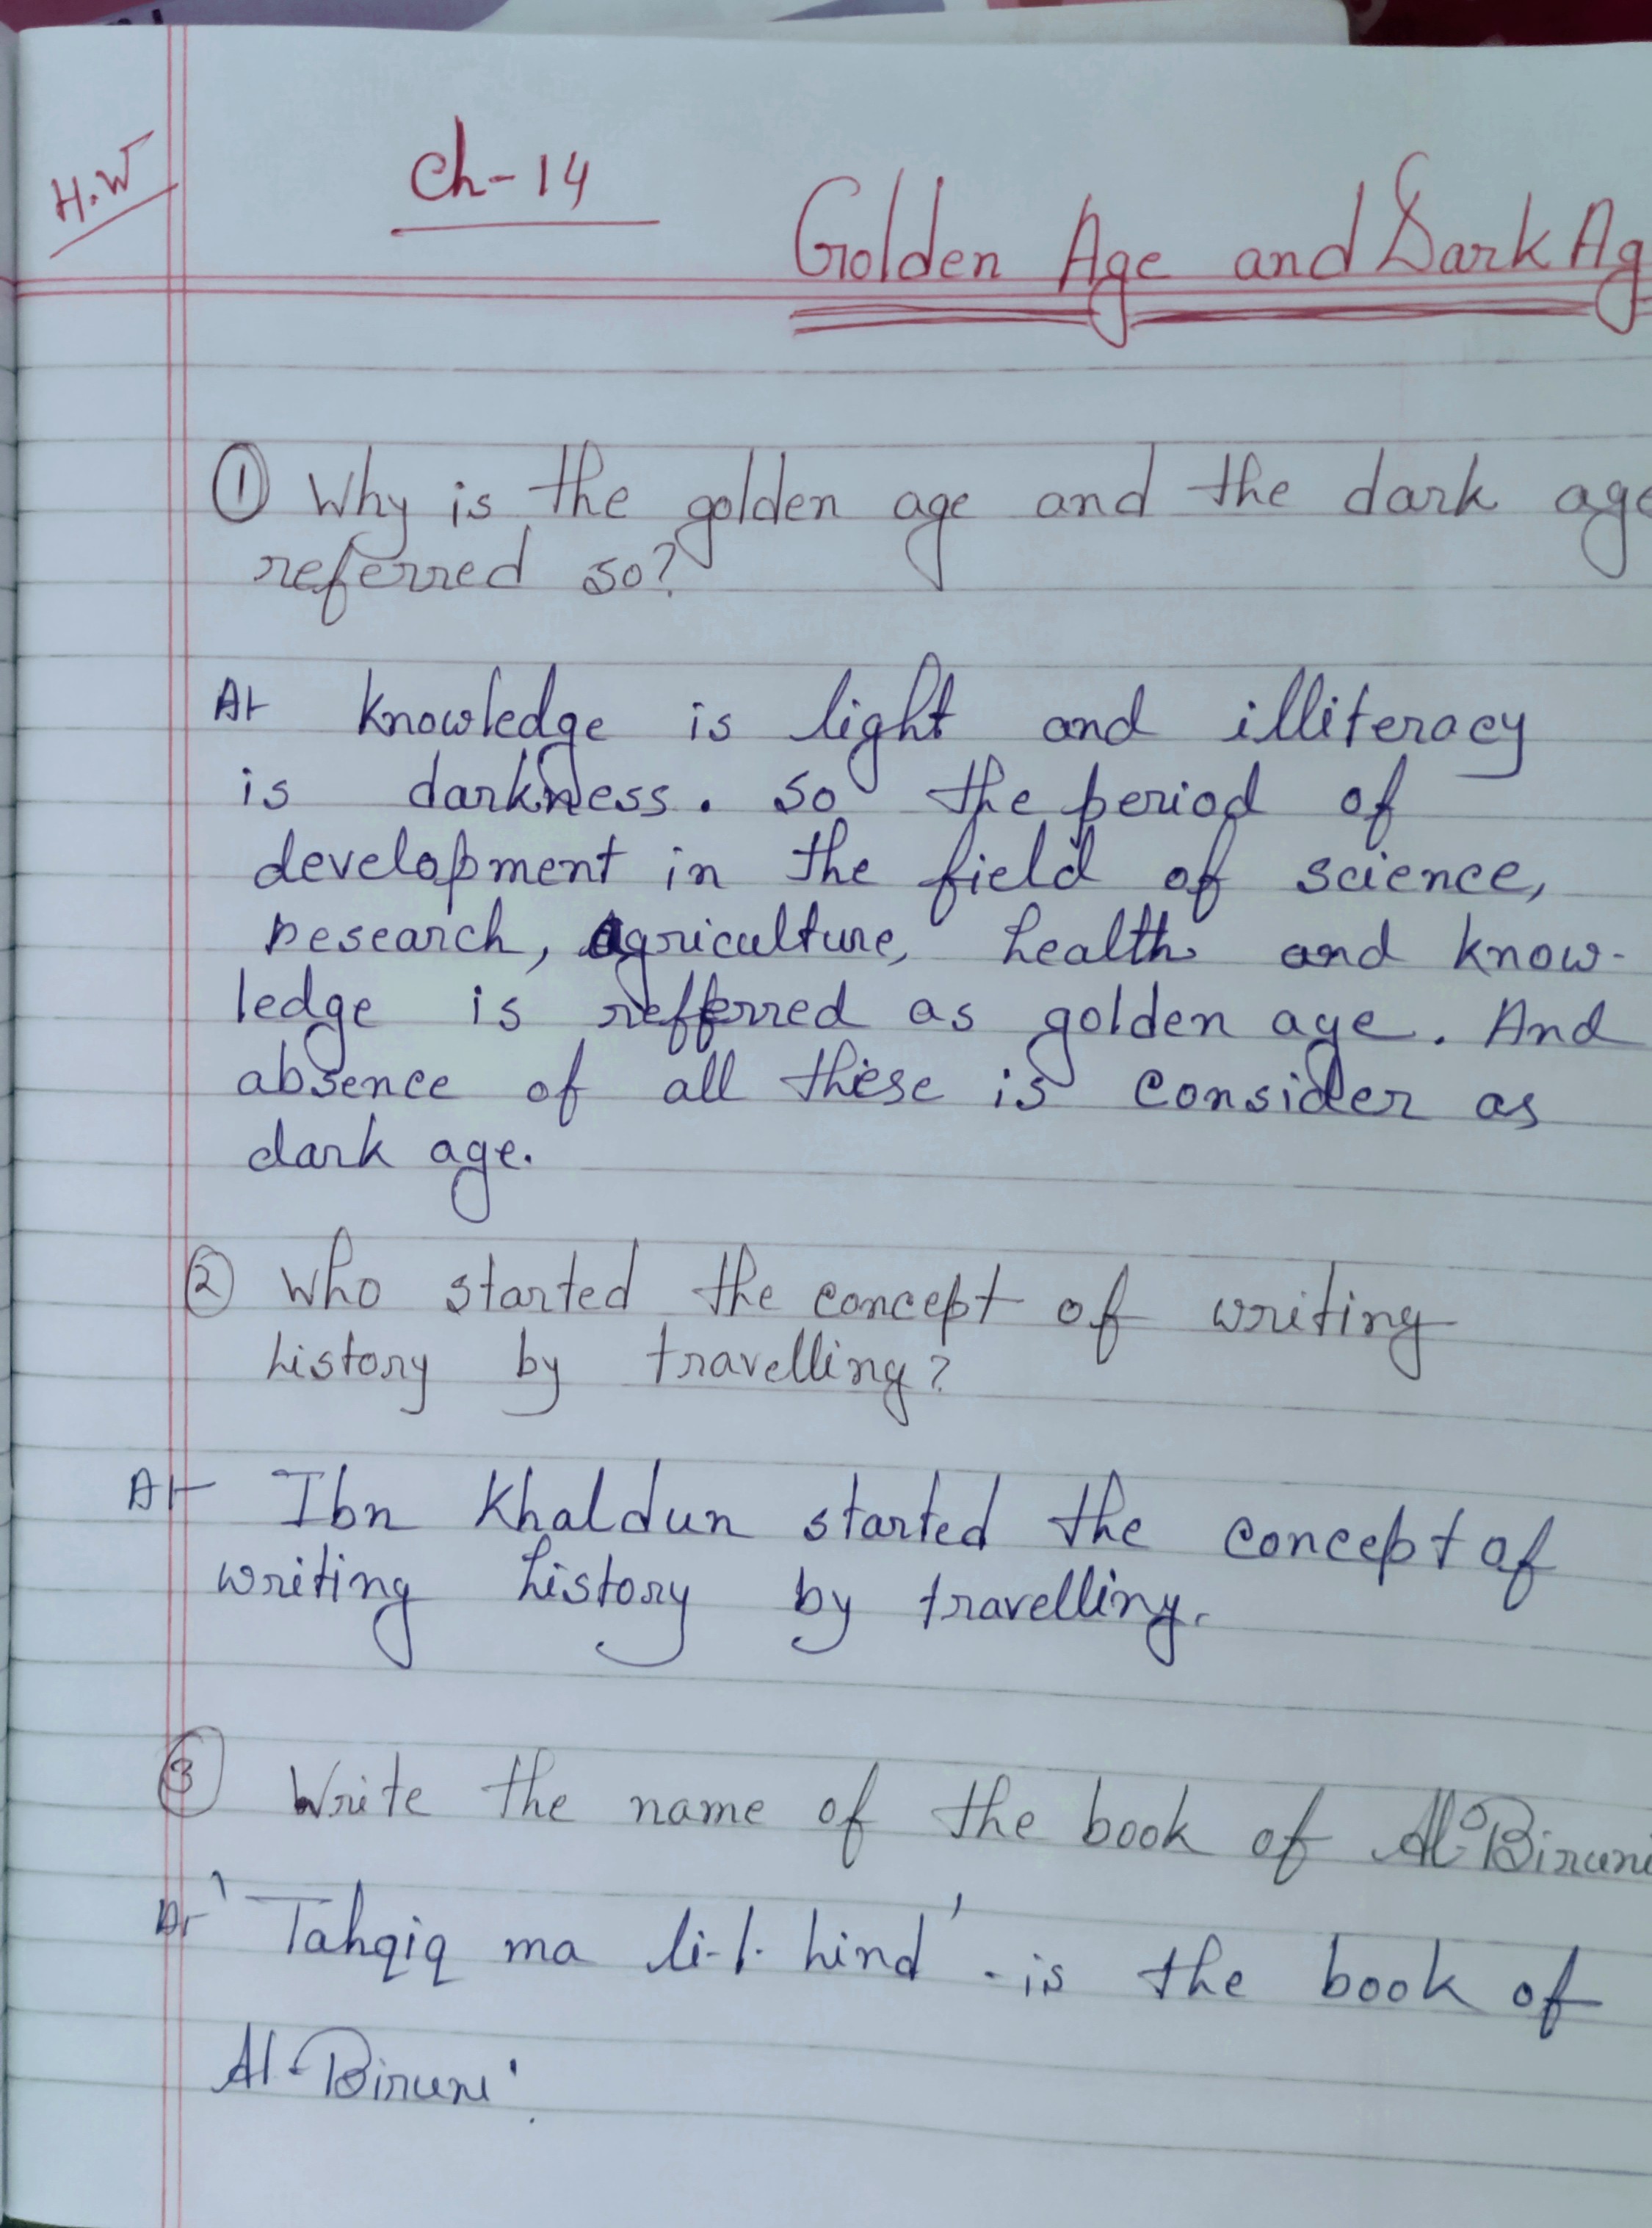 H.W
Ch-14
Golden Age and Dark Ag
① Why is the golden age and the dark age
referred so?
A+ knowledge is light and illiteracy
is darkness. so the period of
development in the field of science,
research, agriculture, health and know-
ledge is refferred as golden age. And
absence of all these is consider as
dark age.
② Who started the concept of writing
history by travelling?
A+ Ibn Khaldun started the concept of
writing history by travelling.
③ Write the name of the book of Al-Biruni
A- 'Tahqiq ma li-l-hind' - is the book of
Al-Biruni.